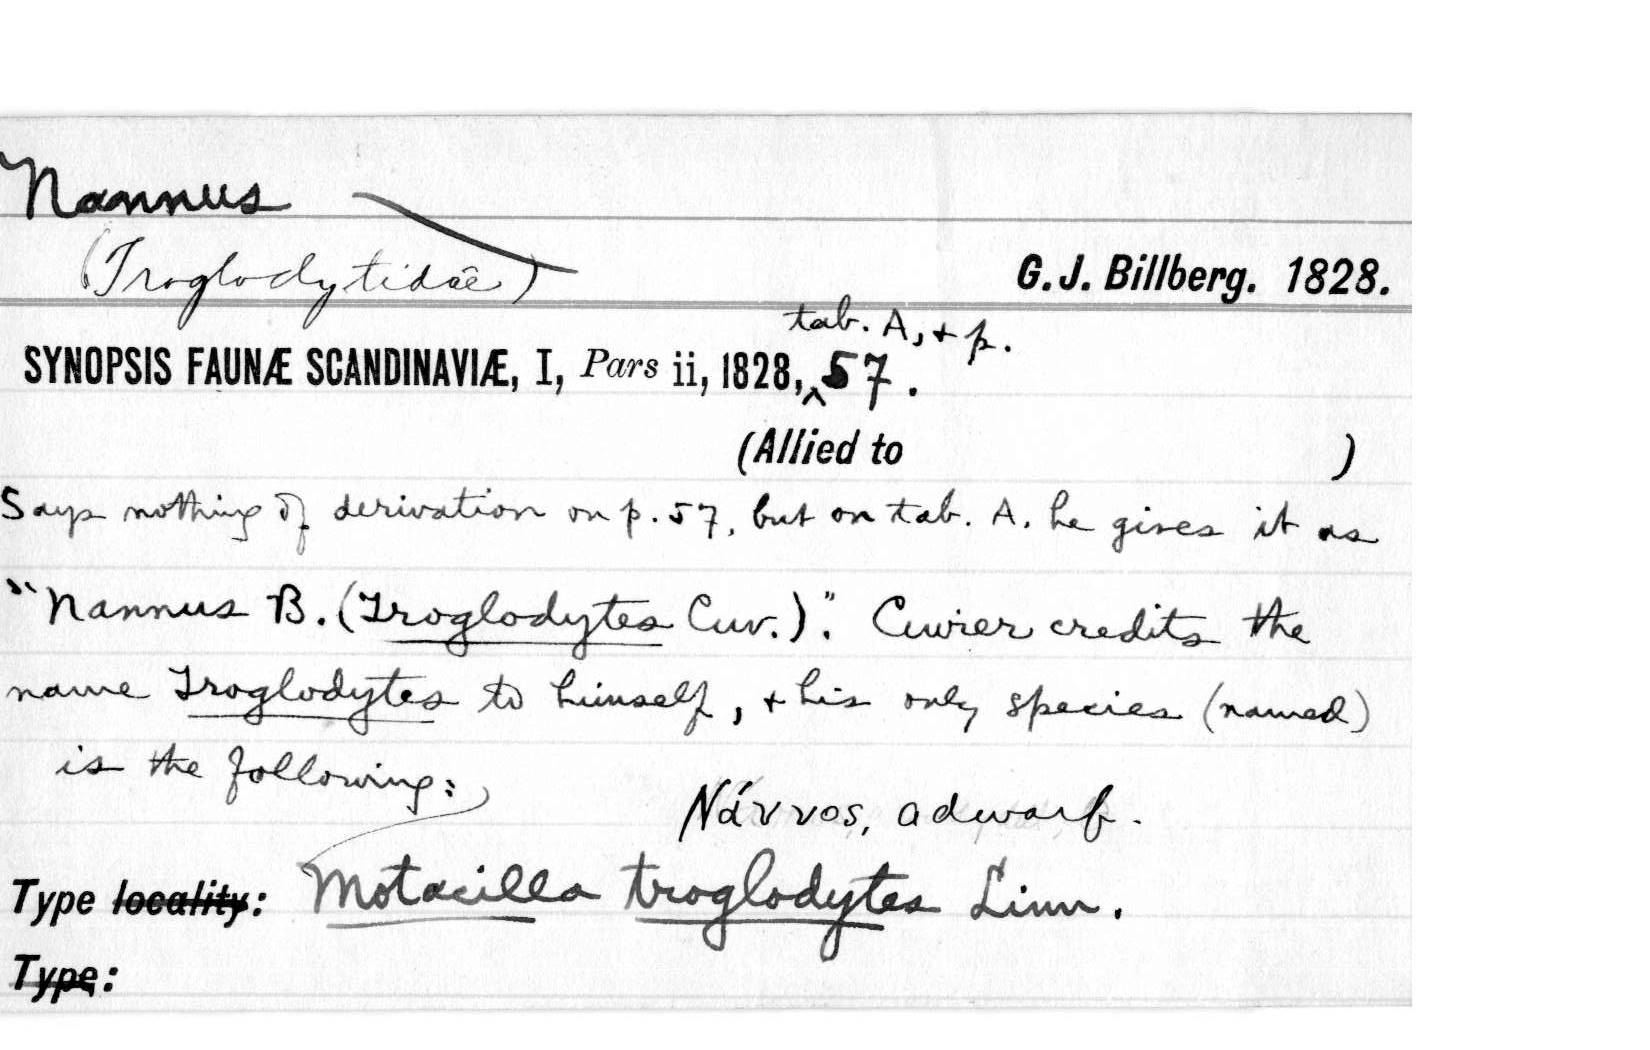 Nannus
(Troglodytidæ)
G. J. Billberg. 1828.
tab. A, + p.
SYNOPSIS FAUNÆ SCANDINAVIÆ, I, Pars ii, 1828, ^ 57.
(Allied to )
Says nothing of derivation on p. 57, but on tab. A. he gives it as
"Nannus B. (Troglodytes Cuv.)". Cuvier credits the
name Troglodytes to himself, + his only species (named)
is the following:
Νάννος, a dwarf.
Type locality: Motacilla troglodytes Linn.
Type: